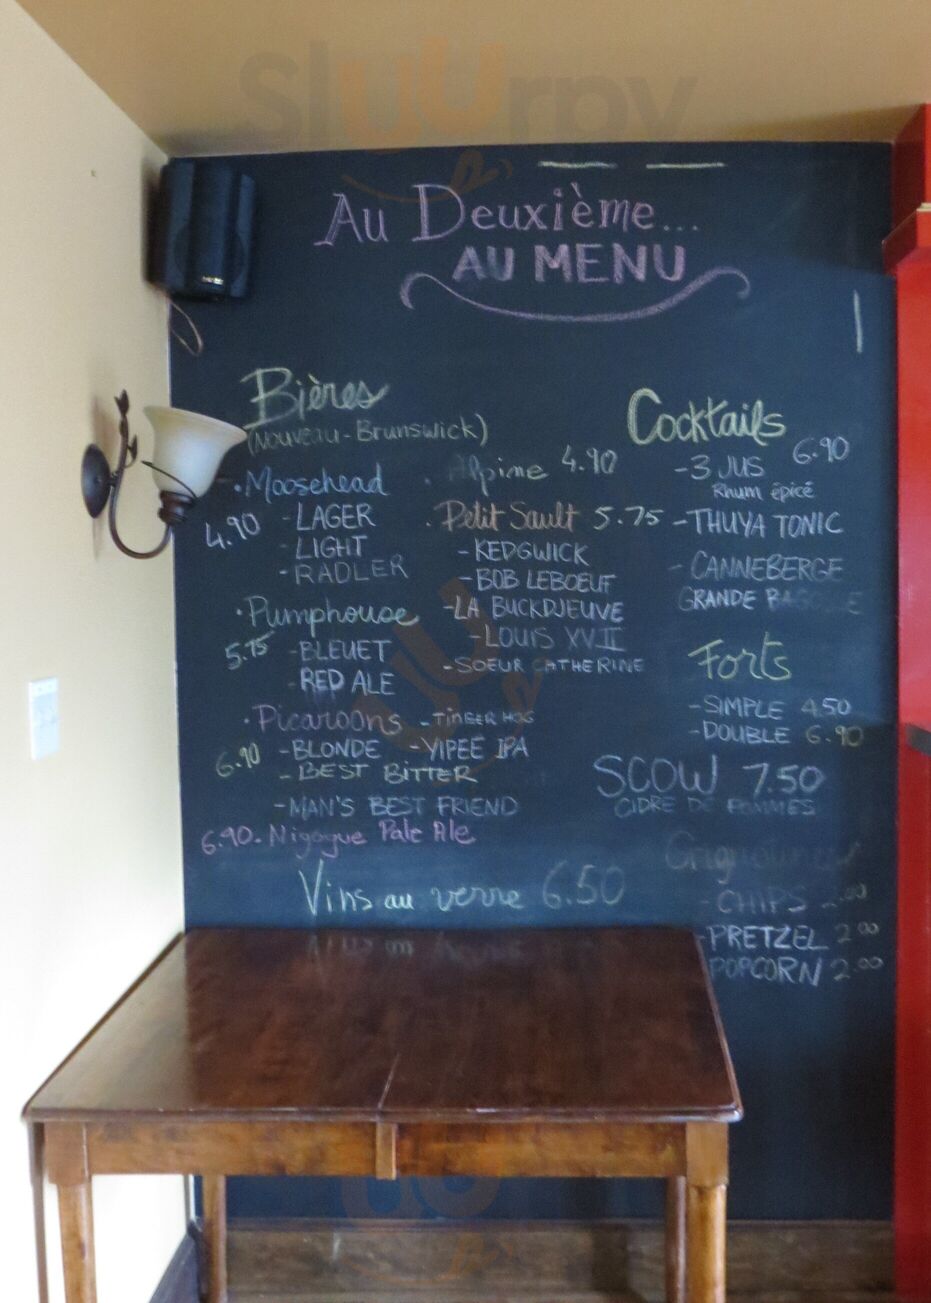 Sluurpy
Au Deuxième...
AU MENU
Bières
(Nouveau-Brunswick)
· Moosehead
4.90 - LAGER
- LIGHT
- RADLER
· Pumphouse
5.75 - BLEUET
- RED ALE
· Picaroons - TIMBER HOG
6.90 - BLONDE - YIPEE IPA
- BEST BITTER
- MAN'S BEST FRIEND
6.90. Nigogue Pale Ale
Vins au verre 6.50
· Alpine 4.90
· Petit Sault 5.75
- KEDGWICK
- BOB LEBOEUF
- LA BUCKDJEUVE
- LOUIS XVII
- SOEUR CATHERINE
Cocktails
- 3 JUS 6.90
Rhum épicé
- THUYA TONIC
- CANNEBERGE
GRANDE
Forts
- SIMPLE 4.50
- DOUBLE 6.90
SCOW 7.50
CIDRE DE POMMES
- CHIPS
- PRETZEL 2.00
POPCORN 2.00